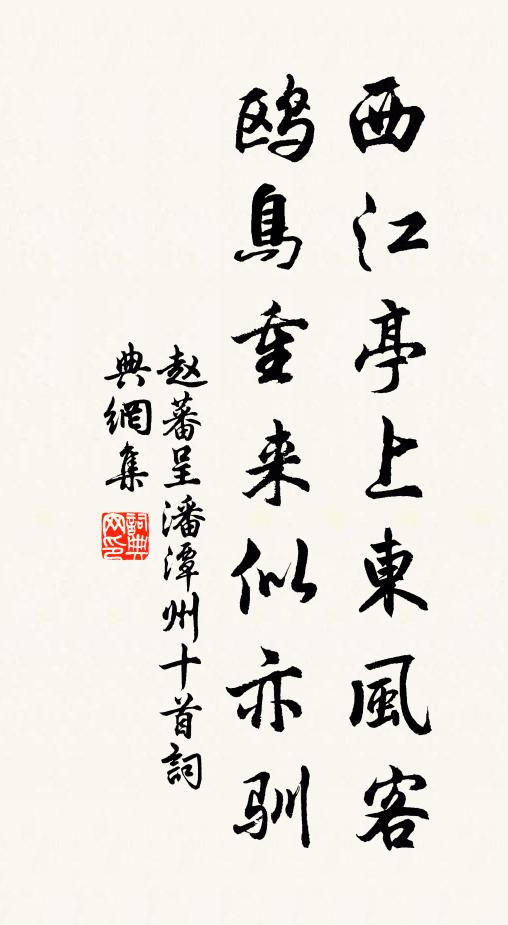 西江亭上東風客
鸥鳥重来似亦馴
赵蕃呈潘潭州十首詞
典網集
詞典网印